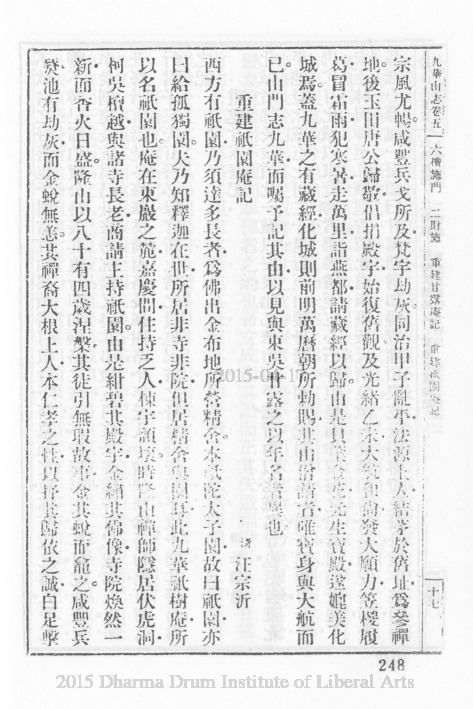 九華山志卷五　六檀施門　二財施　重建甘露庵記　重建祇園庵記
十七
宗風尤暢咸豐兵戈所及梵宇劫灰同治甲子亂平法源上人結茅於舊址爲參禪
地後玉田唐公歸敬倡捐殿宇始復舊觀及光緒乙未大航和尚發大願力笠楼履
葛冒霜雨犯寒暑走萬里詣燕都請藏經以歸由是貝葉金光生寶殿遂媲美化
城焉蓋九華之有藏經化城則前明萬曆朝所勅賜其由啓請者唯寶身與大航而
已山門志九華而囑予記其由以見與東吳甘露之以年名者異也
重建祇園庵記
清 汪宗沂
西方有祇園乃須達多長者爲佛出金布地所營精舍本祇陀太子園故曰祇園亦
曰給孤獨園夫乃知釋迦在世所居非寺非院但居精舍與園耳此九華祇樹庵所
以名祇園也庵在東巖之麓嘉慶間住持乏人棟宇頽壞時隆山禪師隱居伏虎洞
柯吳檀越與諸寺長老商請主持祇園由是紺碧其殿宇金繡其佛像寺院煥然一
新而香火日盛隆山以八十有四歲涅槃其徒引無瑕故事金其蛻而龕之咸豐兵
燹池有劫灰而金蛻無恙其禪裔大根上人本仁孝之性以抒其歸依之誠白足擊
248
2015-04-17
2015 Dharma Drum Institute of Liberal Arts